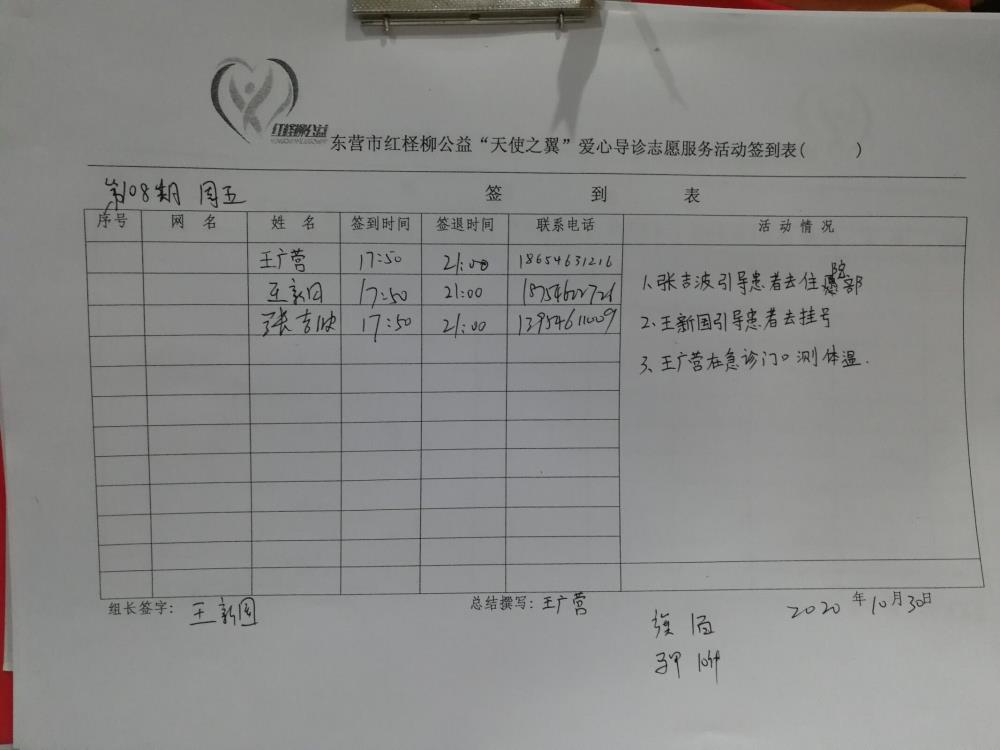 红柽柳公益
东营市红柽柳公益“天使之翼”爱心导诊志愿服务活动签到表( )
第108期 周五
签 到 表
序号 网 名 姓 名 签到时间 签退时间 联系电话 活 动 情 况
王广营 17:50 21:00 18654631216
王新国 17:50 21:00
张吉波 17:50 21:00 13954611009
1.张吉波引导患者去住院部
2.王新国引导患者去挂号
3、王广营在急诊门口测体温.
组长签字: 王新国
总结撰写: 王广营
2020年10月30日